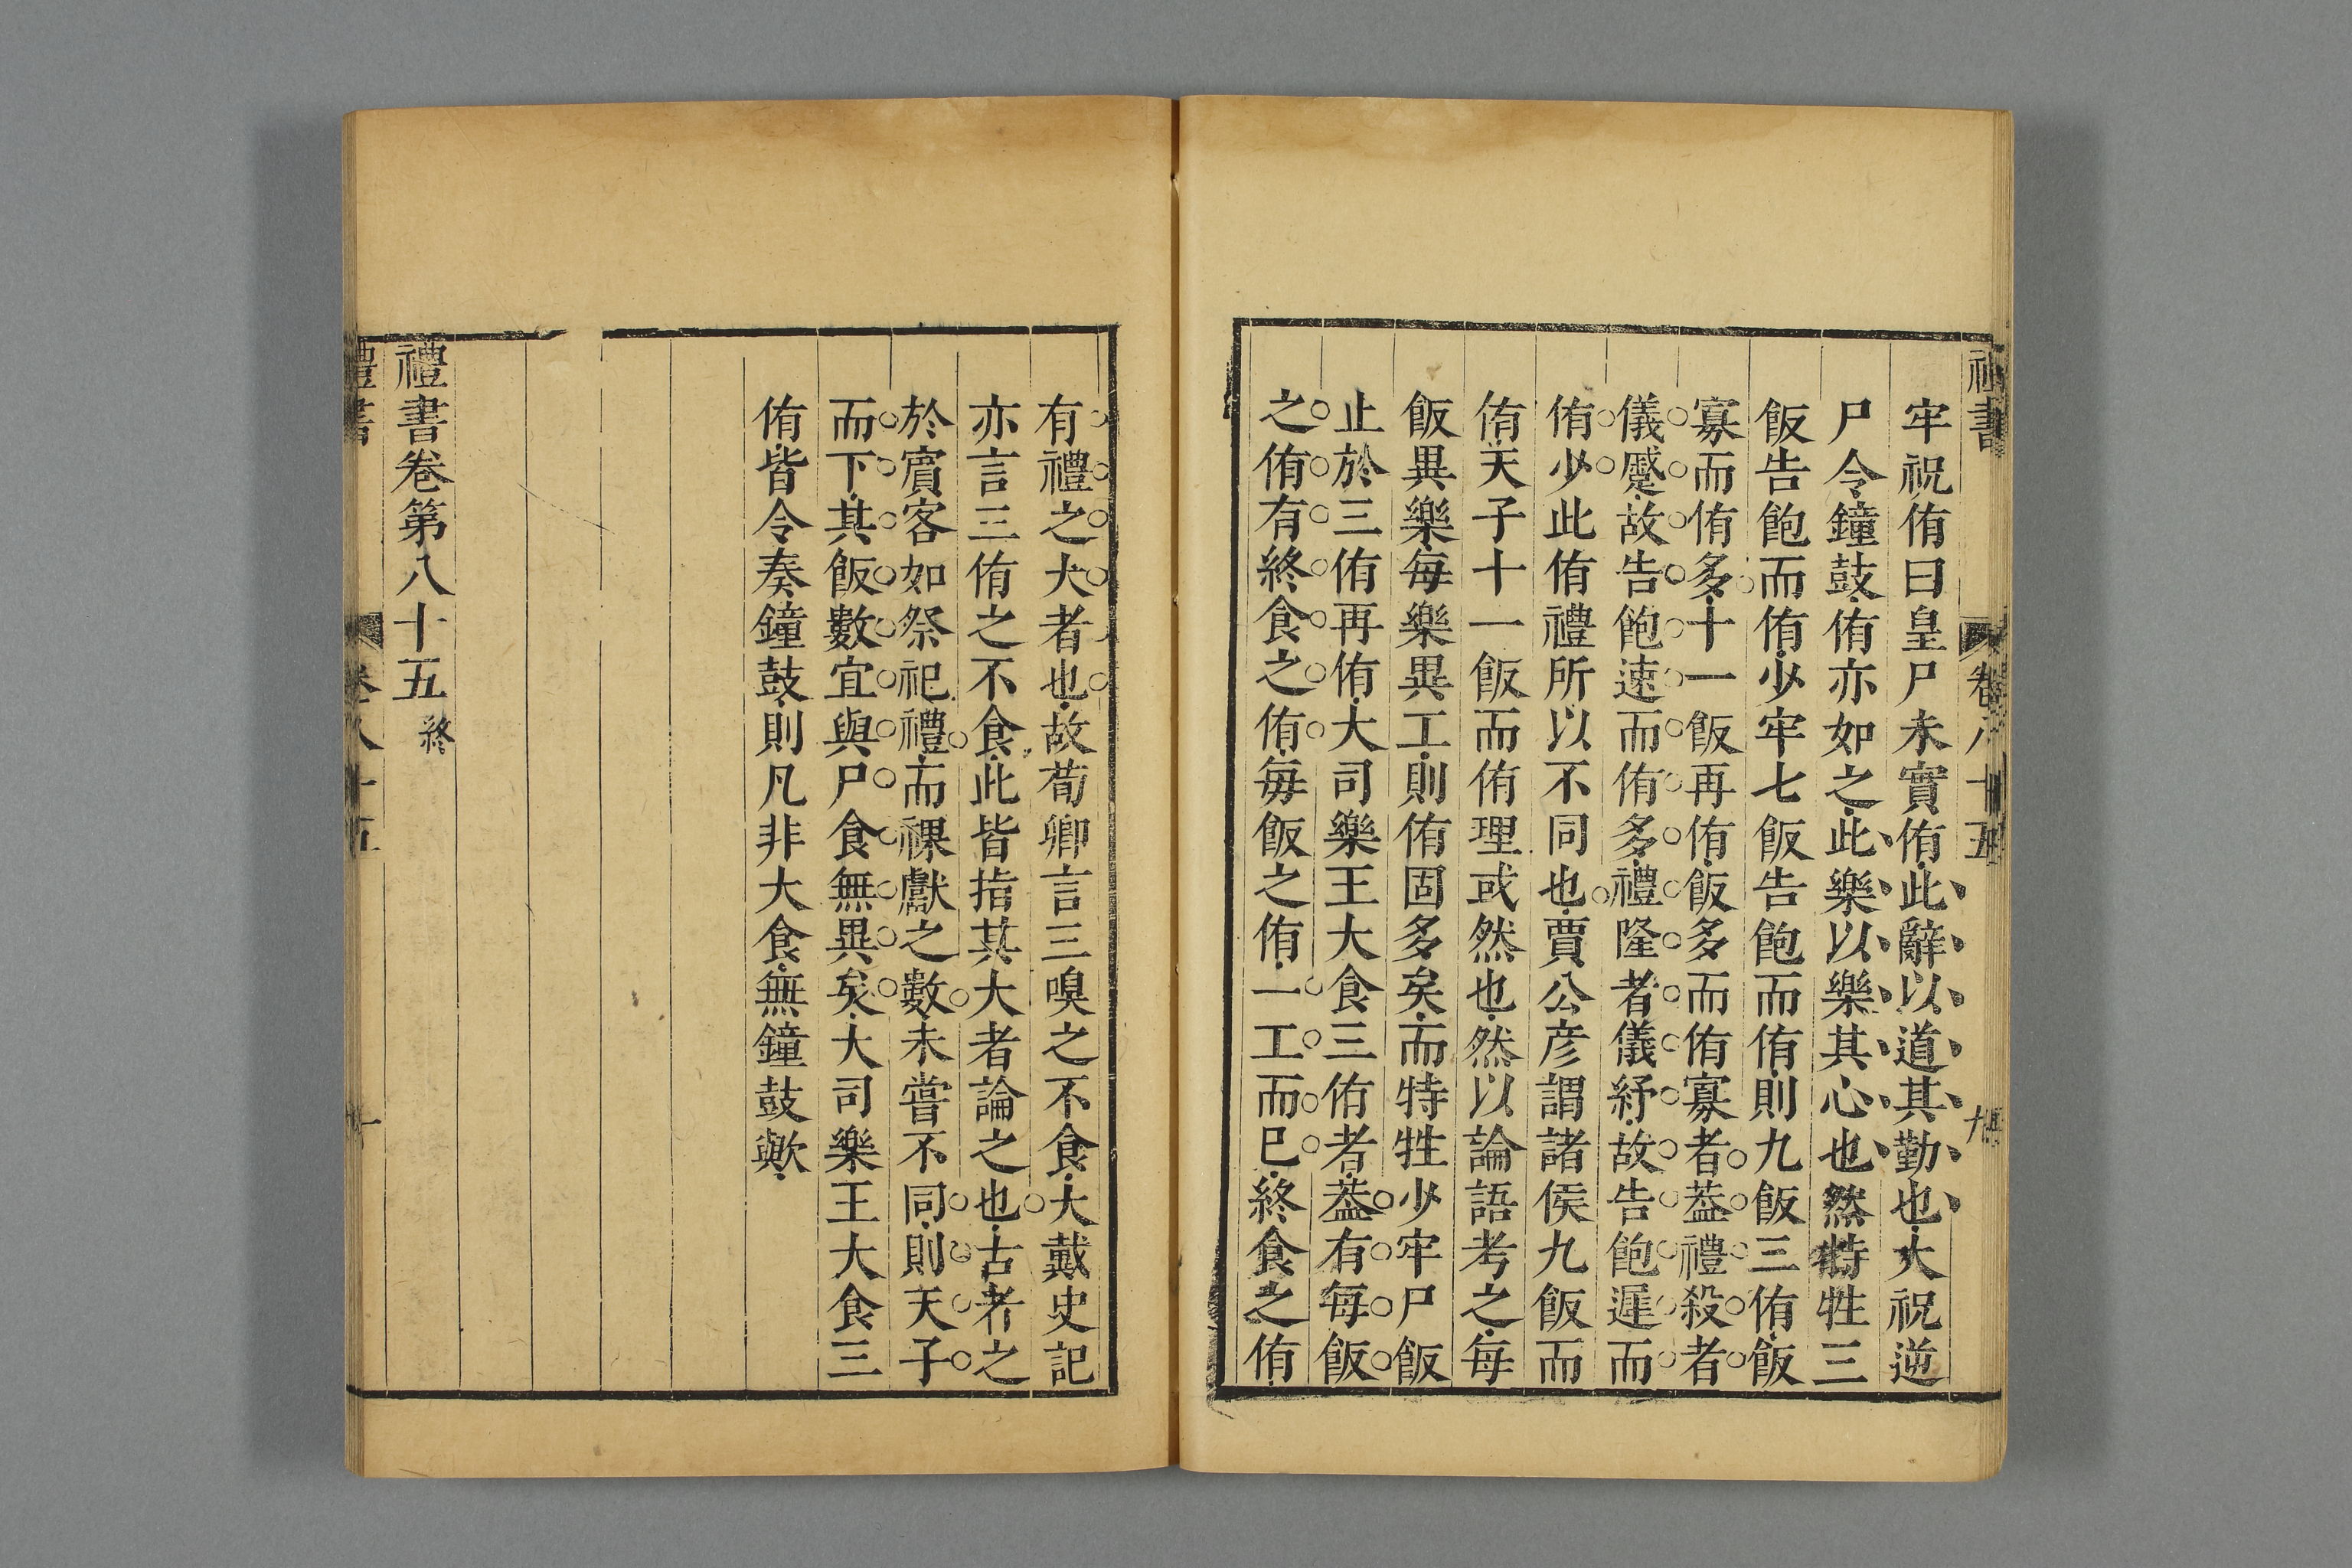 牢祝侑曰皇尸未實侑此辭以道其勤也大祝逆
尸令鐘鼓侑亦如之此樂以樂其心也然特牲三
飯告飽而侑少牢七飯告飽而侑則九飯三侑飯
寡而侑多十一飯再侑飯多而侑寡者葢禮殺者
儀蹙故告飽速而侑多禮隆者儀紓故告飽遲而
侑少此侑禮所以不同也賈公彦謂諸侯九飯而
侑天子十一飯而侑理或然也然以論語考之每
飯異樂每樂異工則侑固多矣而特牲少牢尸飯
止於三侑再侑大司樂王大食三侑者葢有每飯
之侑有終食之侑每飯之侑一工而巳終食之侑
有禮之大者也故荀卿言三嗅之不食大戴史記
亦言三侑之不食此皆指其大者論之也古者之
於賓客如祭祀禮而祼獻之數未嘗不同則天子
而下其飯數宜與尸食無異矣大司樂王大食三
侑皆令奏鐘鼓則凡非大食無鐘鼓歟
禮書卷第八十五終
禮書 卷八十五